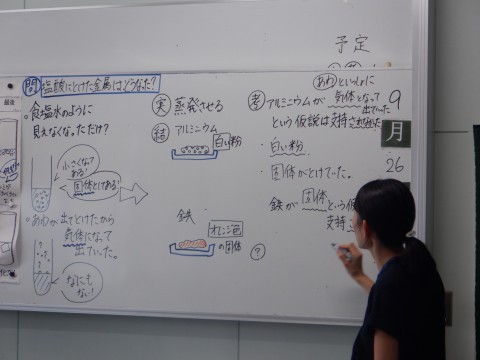 予定
問 塩酸にとけた金属は、どうなった?
・食塩水のように
見えなくな。ただけ?
小さくなってある!
固体とけある!
・あわが出てとけたから
気体になって
出ていった。
なにもない!
実 蒸発させる
結 アルミニウム
白い粉
鉄
オレンジ色
の固体
?
あわといっしょに
考 アルミニウムが 気体となって
出ていった
という仮説は支持されなかった
・白い粉
・固体がとけていた。
鉄が 固体 という仮
支持
9
月
26